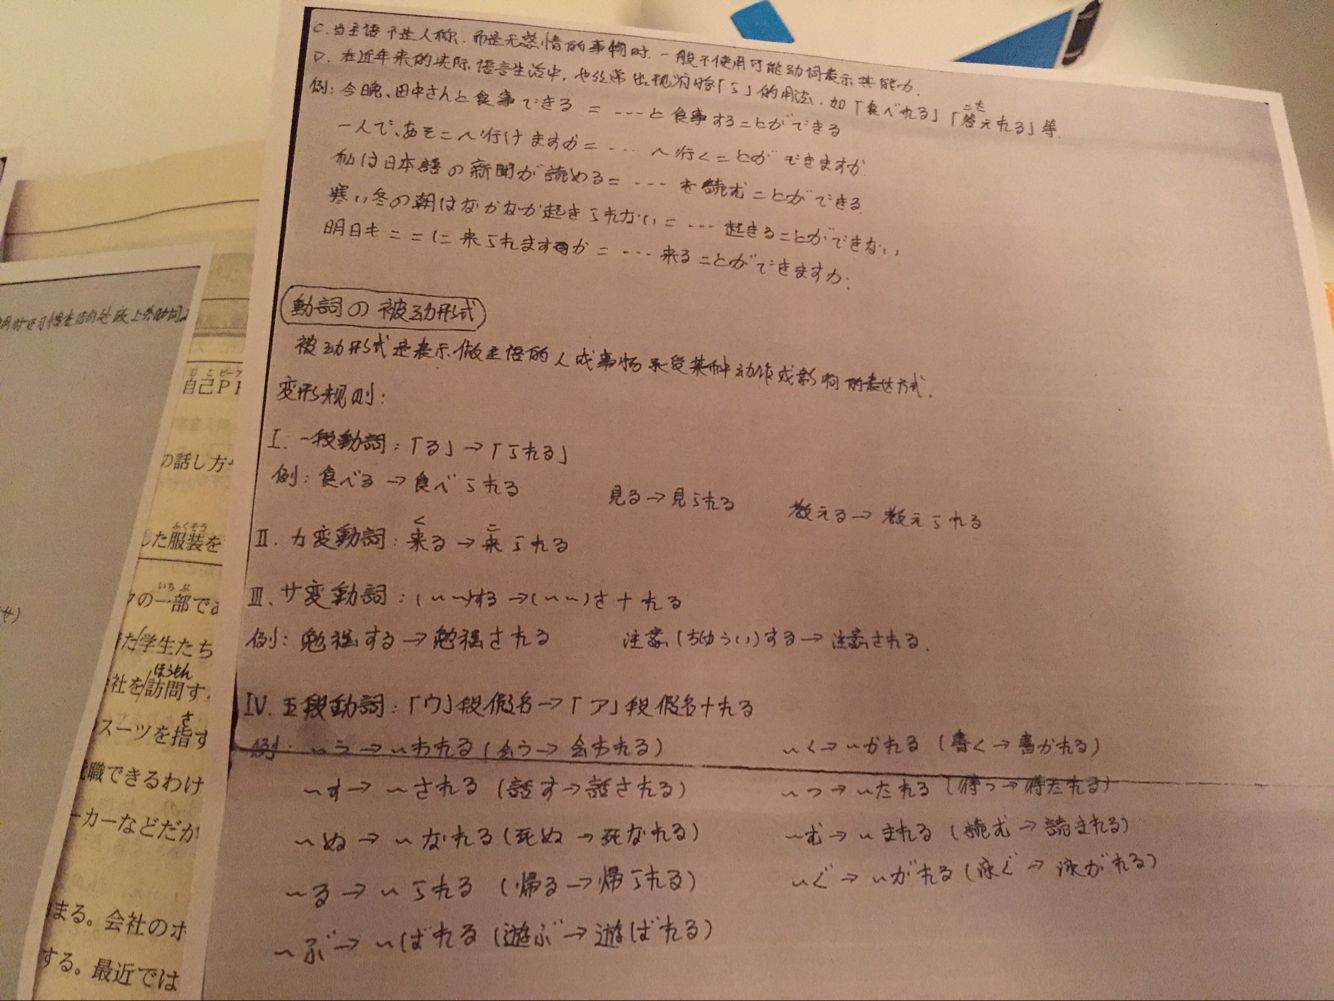 C. 当主语不是人称，而是无感情的事物时，一般不使用可能动词表示其能力。
D. 在近年来的实际语言生活中，也经常出现消除「ら」的用法，如「食べれる」「答えれる」等.
こた
例：今晩、田中さんと食事できる = ……と食事することができる
一人で、あそこへ行けますか = …… へ行くことができますか.
私は日本語の新聞が読める = …… を読むことができる.
寒い冬の朝はなかなか起きられない = …… 起きることができない
明日もここに来られますか = …… 来ることができますか.
動詞の被动形式
被动形式是表示做主语的人或事物承受某种动作或影响的表达方式.
变形规则：
I. 一段動詞：「る」→「られる」
例：食べる → 食べられる 見る→見られる 教える→教えられる
く こ
II. カ変動詞：来る → 来られる
III. サ変動詞：(〜〜)する→(〜〜)さ+れる
例：勉強する→勉強される 注意(ちゅうい)する→注意される.
IV. 五段動詞：「ウ」段假名→「ア」段假名+れる
例：〜う→〜われる (会う→会われる) 〜く→〜かれる (書く→書かれる)
〜す→〜される (話す→話される) 〜つ→〜たれる (待つ→待たれる)
〜ぬ→〜なれる (死ぬ→死なれる) 〜む→〜まれる (読む→読まれる)
〜る→〜られる (帰る→帰られる) 〜ぐ→〜がれる (泳ぐ→泳がれる)
〜ぶ→〜ばれる (遊ぶ→遊ばれる)
自己P
の話し方
ふくそう
した服装を
いちぶ
の一部で
学生たち
ほうもん
社を訪問す
さ
スーツを指す
職できるわけ
ーカーなどだが
まる。会社のオ
する。最近では